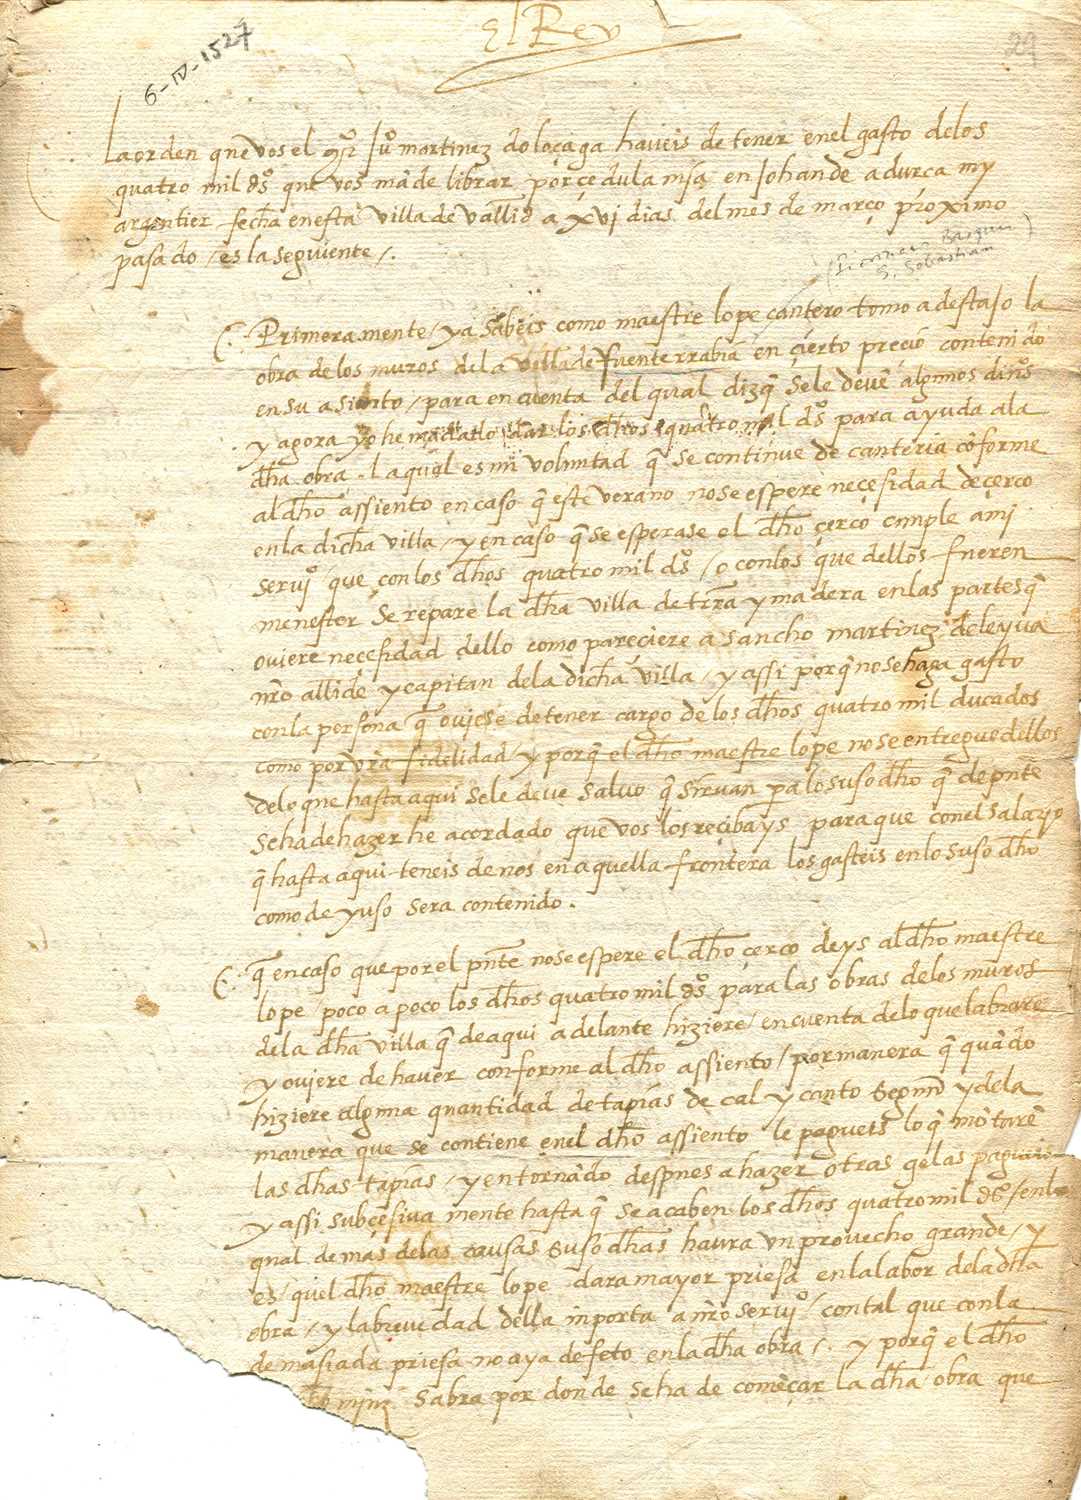 El Rey
29
6-IV-1527
La orden que vos el Ju° martinez doloçaga haveis de tener enel gasto delos
quatro mil ds° que vos mãde librar por çedula mia en Johan de adurca my
argentier fecha en esta villa de vallid a xvj dias del mes de março proximo
pasado / es la seguiente /.
S. Sebastian
Primeramente / ya sabeis como maestre lope cantero tomo a destajo la
obra de los muros dela villa de fuenterrabia en çierto preçio contenido
en su asiento / para en cuenta del qual dizq̃ sele devẽ algunos din°s
y agora yo he mãdado dar los dh̃os quatro mil ds° para ayuda ala
dh̃a obra . la qual es mi voluntad q̃ se continue de canteria cõforme
al dh̃o assiento en caso q̃ este verano nose espere neçesidad de çerco
en la dicha villa / y en caso q̃ se esperase el dh̃o çerco cumple a mi
servi° que con los dh̃os quatro mil ds° / o con los que dellos fueren
menester se repare la dh̃a villa de trr̃a y madera en las partes q̃
oviere neçesidad dello como pareçiere a sancho martinez de leyva
nr̃o allcide y capitan dela dicha villa / y assi porq̃ no se haga gasto
con la persona q̃ oviese de tener cargo de los dh̃os quatro mil ducados
como por vr̃a fidelidad / y porq̃ el dh̃o maestre lope no se entregue dellos
delo que hasta aqui sele deve salvo q̃ sirvan p̃a lo suso dh̃o q̃ de pñte
se ha de hazer he acordado que vos los recibays para que con el salario
q̃ hasta aqui teneis de nos en aquella frontera los gasteis en lo suso dh̃o
como de yuso sera contenido .
q̃ en caso que por el pñte nose espere el dh̃o çerco deys al dh̃o maestre
lope / poco a poco los dh̃os quatro mil ds° para las obras delos muros
dela dh̃a villa q̃ de aqui adelante hiziere / en cuenta delo que labrare
y oviere de haver conforme al dh̃o assiento / por manera q̃ quãdo
hiziere alguna quantidad de tapias de cal y canto segun y dela
manera que se contiene enel dh̃o assiento le pagueis lo q̃ mõtarẽ
las dh̃as tapias / y en tornãdo despues a hazer otras gelas pagueis
y assi subçesiva mente hasta q̃ se acaben los dh̃os quatro mil ds° / en lo
qual demas delas causas suso dh̃as havra un provecho grande / y
es / quel dh̃o maestre lope dara mayor priesa en la labor dela dh̃a
obra / y la brevedad della inporta a nr̃o servi° / con tal que con la
demasiada priesa no aya defeto en la dh̃a obra /. y porq̃ el dh̃o
sabra por donde se ha de començar la dh̃a obra que